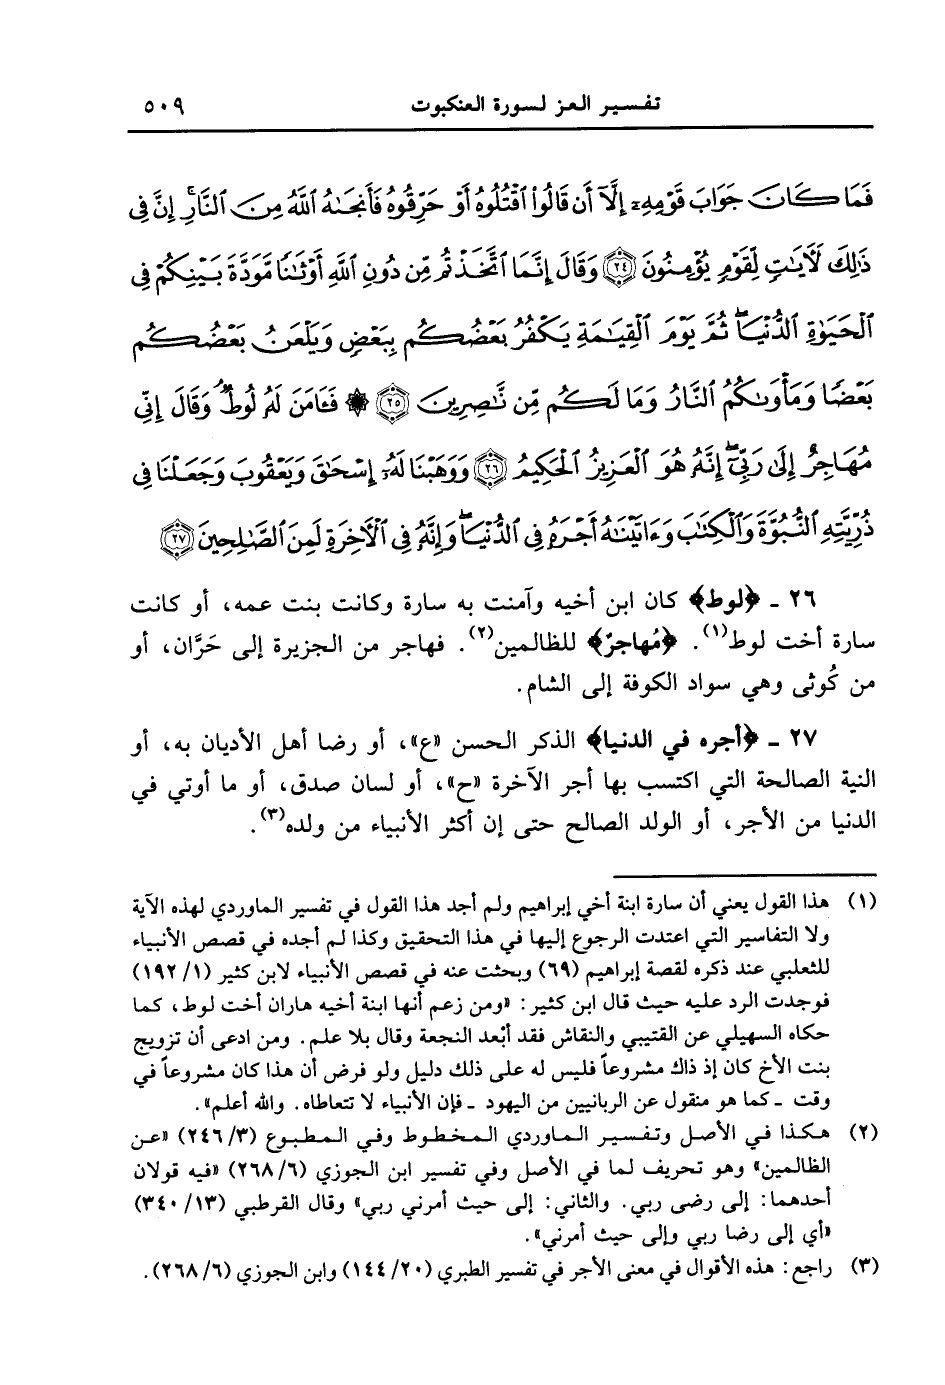 تفسير العز لسورة العنكبوت ٥٠٩
فَمَا كَانَ جَوَابَ قَوْمِهِۦٓ إِلَّآ أَن قَالُوا۟ ٱقْتُلُوهُ أَوْ حَرِّقُوهُ فَأَنجَىٰهُ ٱللَّهُ مِنَ ٱلنَّارِ ۚ إِنَّ فِى
ذَٰلِكَ لَءَايَـٰتٍ لِّقَوْمٍ يُؤْمِنُونَ ٢٤ وَقَالَ إِنَّمَا ٱتَّخَذْتُم مِّن دُونِ ٱللَّهِ أَوْثَـٰنًا مَّوَدَّةَ بَيْنِكُمْ فِى
ٱلْحَيَوٰةِ ٱلدُّنْيَا ۖ ثُمَّ يَوْمَ ٱلْقِيَـٰمَةِ يَكْفُرُ بَعْضُكُم بِبَعْضٍ وَيَلْعَنُ بَعْضُكُم
بَعْضًا وَمَأْوَىٰكُمُ ٱلنَّارُ وَمَا لَكُم مِّن نَّـٰصِرِينَ ٢٥ ۞ فَـَٔامَنَ لَهُۥ لُوطٌ ۘ وَقَالَ إِنِّى
مُهَاجِرٌ إِلَىٰ رَبِّىٓ ۖ إِنَّهُۥ هُوَ ٱلْعَزِيزُ ٱلْحَكِيمُ ٢٦ وَوَهَبْنَا لَهُۥٓ إِسْحَـٰقَ وَيَعْقُوبَ وَجَعَلْنَا فِى
ذُرِّيَّتِهِ ٱلنُّبُوَّةَ وَٱلْكِتَـٰبَ وَءَاتَيْنَـٰهُ أَجْرَهُۥ فِى ٱلدُّنْيَا ۖ وَإِنَّهُۥ فِى ٱلْـَٔاخِرَةِ لَمِنَ ٱلصَّـٰلِحِينَ ٢٧
٢٦ ـ ﴿لوط﴾ كان ابن أخيه وآمنت به سارة وكانت بنت عمه، أو كانت
سارة أخت لوط(١). ﴿مُهاجرٌ﴾ للظالمين(٢). فهاجر من الجزيرة إلى حَرَّان، أو
من كُوثى وهي سواد الكوفة إلى الشام.
٢٧ ـ ﴿أجره في الدنيا﴾ الذكر الحسن «ع»، أو رضا أهل الأديان به، أو
النية الصالحة التي اكتسب بها أجر الآخرة «ح»، أو لسان صدق، أو ما أوتي في
الدنيا من الأجر، أو الولد الصالح حتى إن أكثر الأنبياء من ولده(٣).
(١) هذا القول يعني أن سارة ابنة أخي إبراهيم ولم أجد هذا القول في تفسير الماوردي لهذه الآية
ولا التفاسير التي اعتدت الرجوع إليها في هذا التحقيق وكذا لم أجده في قصص الأنبياء
للثعلبي عند ذكره لقصة إبراهيم (٦٩) وبحثت عنه في قصص الأنبياء لابن كثير (١٩٢/١)
فوجدت الرد عليه حيث قال ابن كثير: «ومن زعم أنها ابنة أخيه هاران أخت لوط، كما
حكاه السهيلي عن القتيبي والنقاش فقد أبْعد النجعة وقال بلا علم. ومن ادعى أن تزويج
بنت الأخ كان إذ ذاك مشروعاً فليس له على ذلك دليل ولو فرض أن هذا كان مشروعاً في
وقت ـ كما هو منقول عن الربانيين من اليهود ـ فإن الأنبياء لا تتعاطاه. والله أعلم».
(٢) هكذا في الأصل وتفسير الماوردي المخطوط وفي المطبوع (٢٤٦/٣) «عن
الظالمين» وهو تحريف لما في الأصل وفي تفسير ابن الجوزي (٢٦٨/٦) «فيه قولان
أحدهما: إلى رضى ربي. والثاني: إلى حيث أمرني ربي» وقال القرطبي (٣٤٠/١٣)
«أي إلى رضا ربي وإلى حيث أمرني».
(٣) راجع: هذه الأقوال في معنى الأجر في تفسير الطبري (١٤٤/٢٠) وابن الجوزي (٢٦٨/٦).